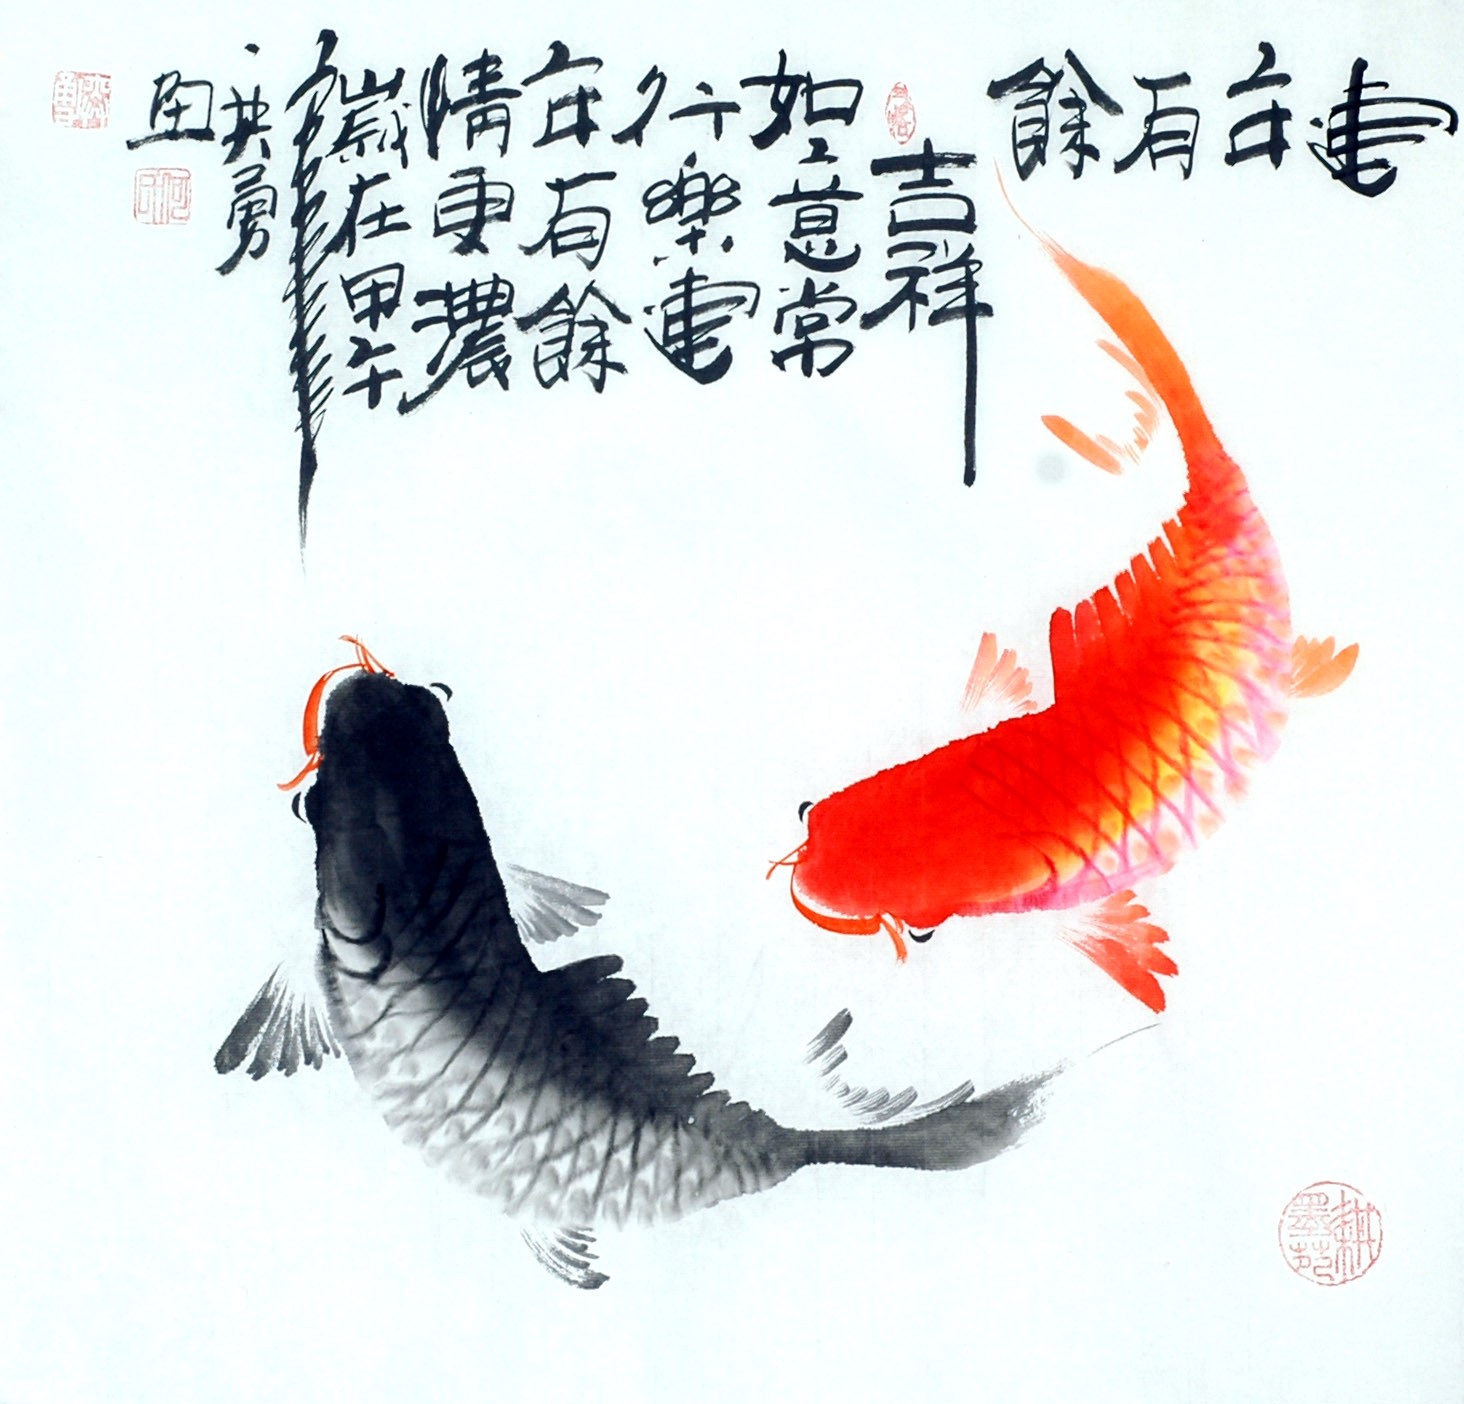 連年有餘
吉祥
如意常
行樂連
年有餘
情更濃
歲在甲午
年
共勇
画